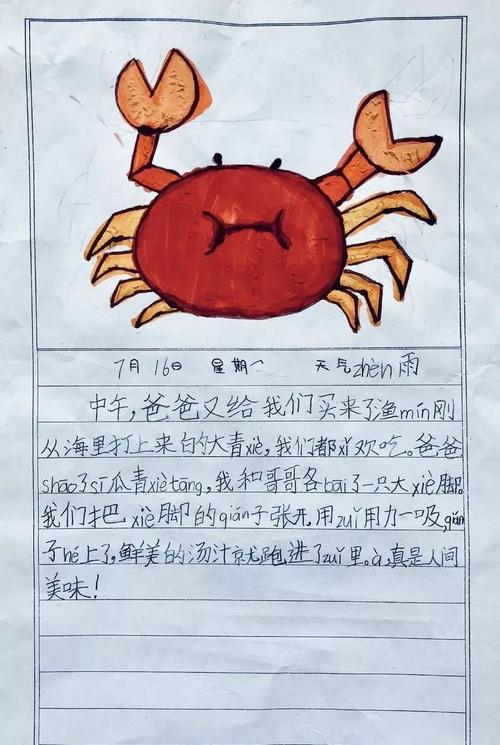 7月16日 星期一 天气zhèn雨
中午,爸爸又给我们买来了渔mín刚
从海里打上来的大青xiè,我们都xǐ欢吃。爸爸
shāo了sī瓜青xiètāng,我和哥哥各bāi了一只大xiè脚。
我们把xiè脚的qián子张开,用zuǐ用力一吸,qián
子hé上了,鲜美的汤汁就跑进了zuǐ里。à,真是人间
美味!